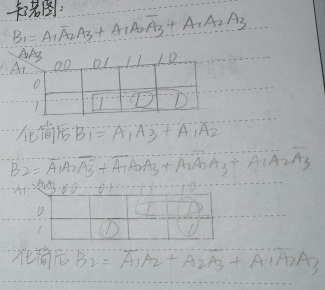 卡诺图:
B₁ = A₁A̅₂A₃ + A₁A₂A̅₃ + A₁A₂A₃
A₂A₃
A₁ 00 01 11 10
0
1 1 1 1
化简后 B₁ = A₁A₃ + A₁A₂
B₂ = A̅₁A₂A̅₃ + A̅₁A₂A₃ + A₁A̅₂A₃ + A₁A₂A̅₃
A₁ A₂A₃ 00 01 11 10
0 1 1
1 1 1
化简后 B₂ = A̅₁A₂ + A₂A̅₃ + A₁A̅₂A₃